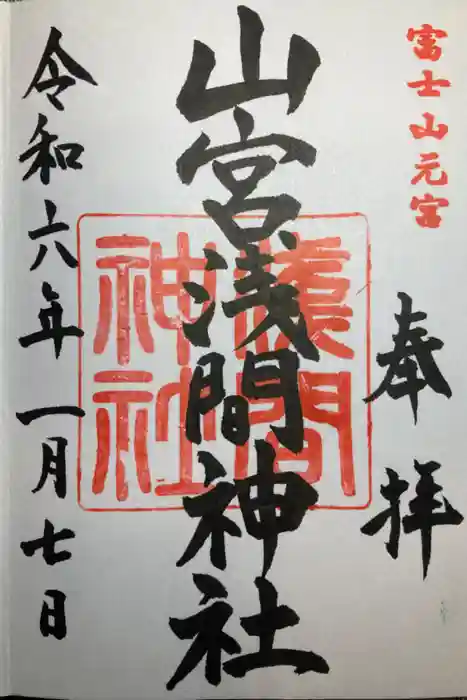 富士山元宮
奉拝
山宮浅間神社
淺間
神社
令和六年一月七日